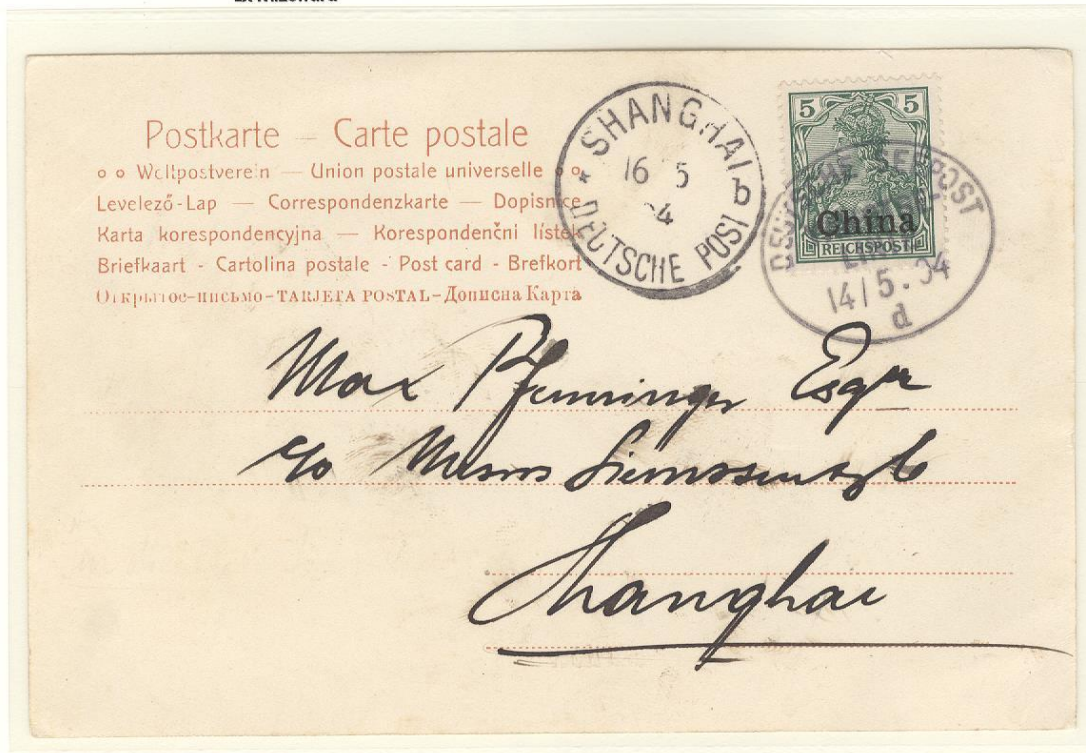 Postkarte — Carte postale
Weltpostverein — Union postale universelle
Levelező-Lap — Correspondenzkarte — Dopisnice
Karta korespondencyjna — Korespondenční lístek
Briefkaart - Cartolina postale - Post card - Brefkort
Открытое-письмо-TARJETA POSTAL-Дописна Карта
* SHANGHAI b
16 5
4
DEUTSCHE POST
5 5
China
REICHSPOST
DEUTSCHE SEEPOST
14/5.04
d
Max Pfenninger Esqr
c/o Messrs Siemssen & Co
Shanghai